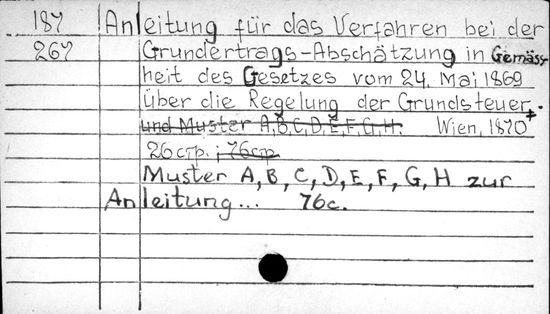 187 Anleitung für das Verfahren bei der
267 Grundertrags-Abschätzung in Gemäss-
heit des Gesetzes vom 24. Mai 1869
über die Regelung der Grundsteuer.
und Muster A,B,C,D,E,F,G,H. Wien, 1870 +
26 стр. ; 76 стр.
Muster A, B, C, D, E, F, G, H zur
Anleitung... 76 c.